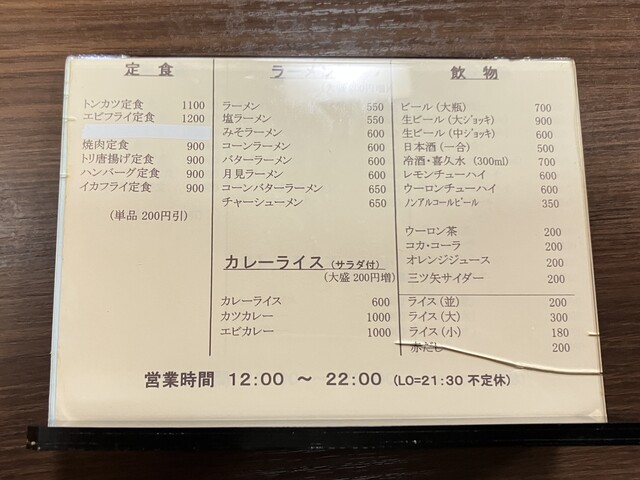 定食
トンカツ定食 1100
エビフライ定食 1200
焼肉定食 900
トリ唐揚げ定食 900
ハンバーグ定食 900
イカフライ定食 900
(単品 200円引)
ラーメン
ラーメン 550
塩ラーメン 550
みそラーメン 600
コーンラーメン 600
バターラーメン 600
月見ラーメン 600
コーンバターラーメン 650
チャーシューメン 650
カレーライス (サラダ付)
(大盛 200円増)
カレーライス 600
カツカレー 1000
エビカレー 1000
飲物
ビール (大瓶) 700
生ビール (大ジョッキ) 900
生ビール (中ジョッキ) 600
日本酒 (一合) 500
冷酒・喜久水 (300ml) 700
レモンチューハイ 600
ウーロンチューハイ 600
ノンアルコールビール 350
ウーロン茶 200
コカ・コーラ 200
オレンジジュース 200
三ツ矢サイダー 200
ライス (並) 200
ライス (大) 300
ライス (小) 180
赤だし 200
営業時間 12:00 ～ 22:00 (LO=21:30 不定休)